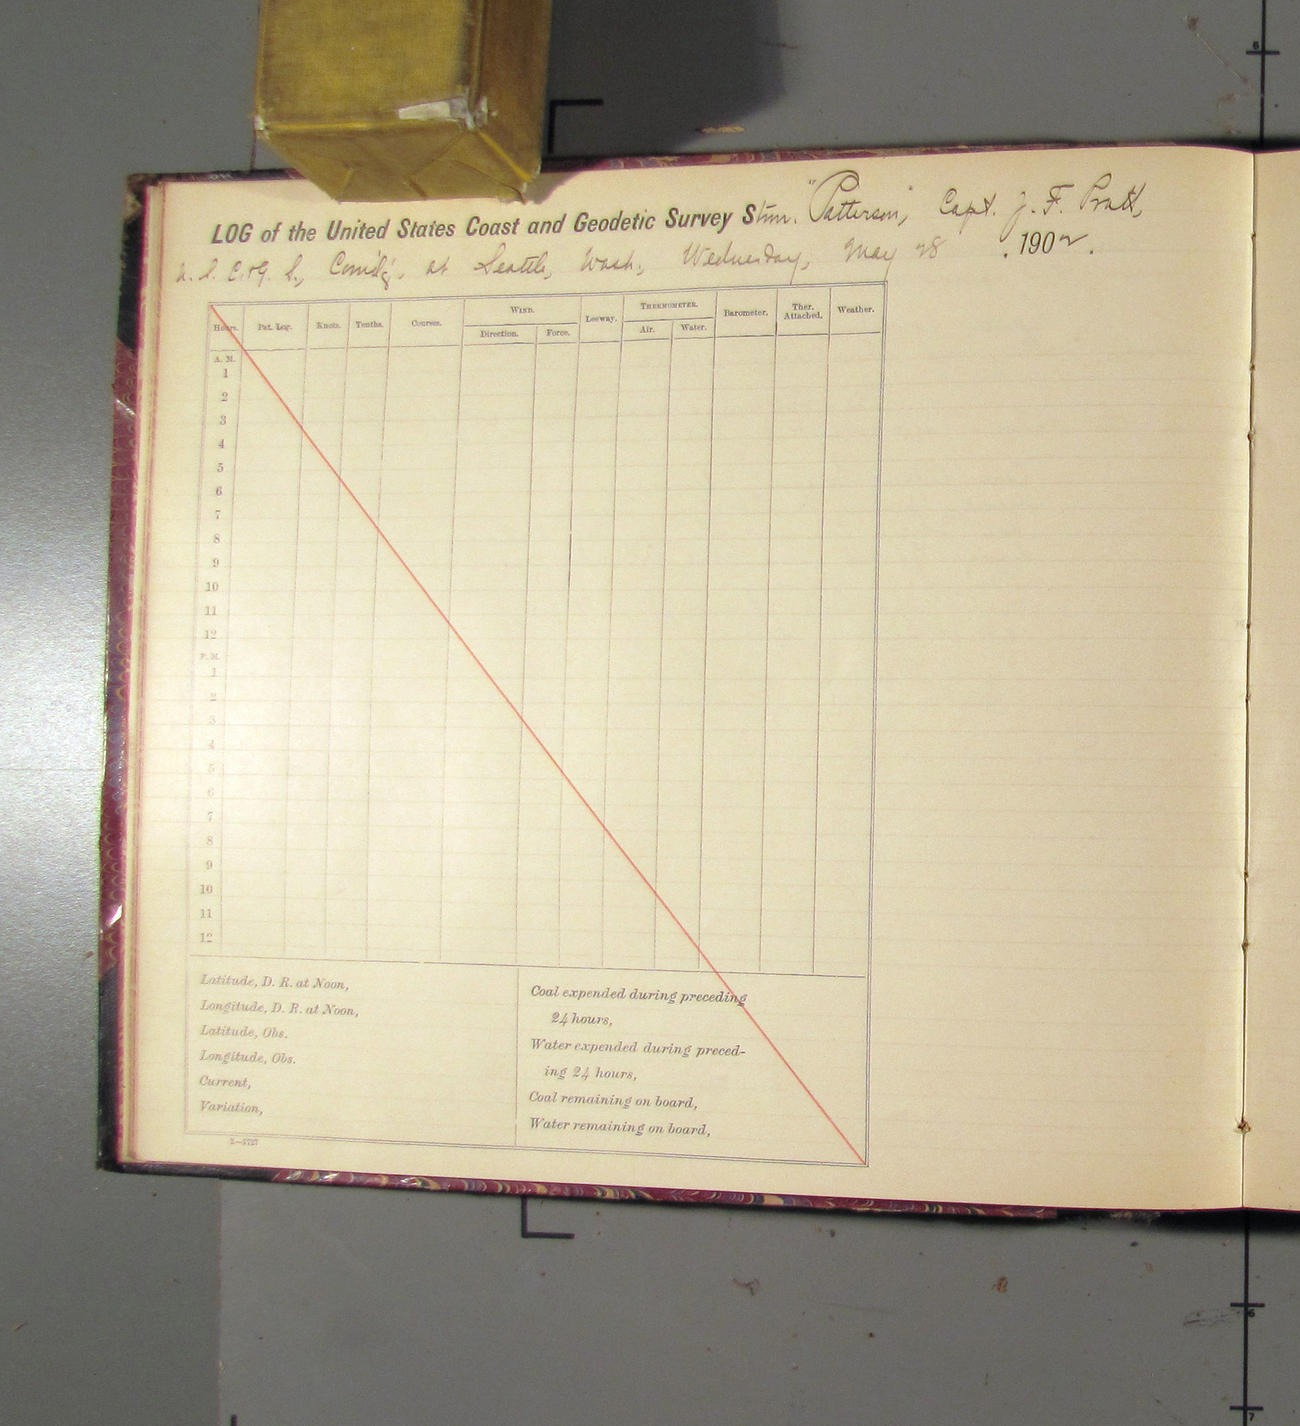 LOG of the United States Coast and Geodetic Survey Stmr. "Patterson", Capt. J. F. Pratt,
U. S. C. & G. S., Comd'g, at Seattle, Wash., Wednesday, May 28, 1902.
Hours. Pat. Log. Knots. Tenths. Courses. WIND. Leeway. THERMOMETER. Barometer. Ther. Attached. Weather.
Direction. Force. Air. Water.
A. M.
1
2
3
4
5
6
7
8
9
10
11
12
P. M.
1
2
3
4
5
6
7
8
9
10
11
12
Latitude, D. R. at Noon,
Longitude, D. R. at Noon,
Latitude, Obs.
Longitude, Obs.
Current,
Variation,
Coal expended during preceding
24 hours,
Water expended during preced-
ing 24 hours,
Coal remaining on board,
Water remaining on board,
2—5727
6
6
7